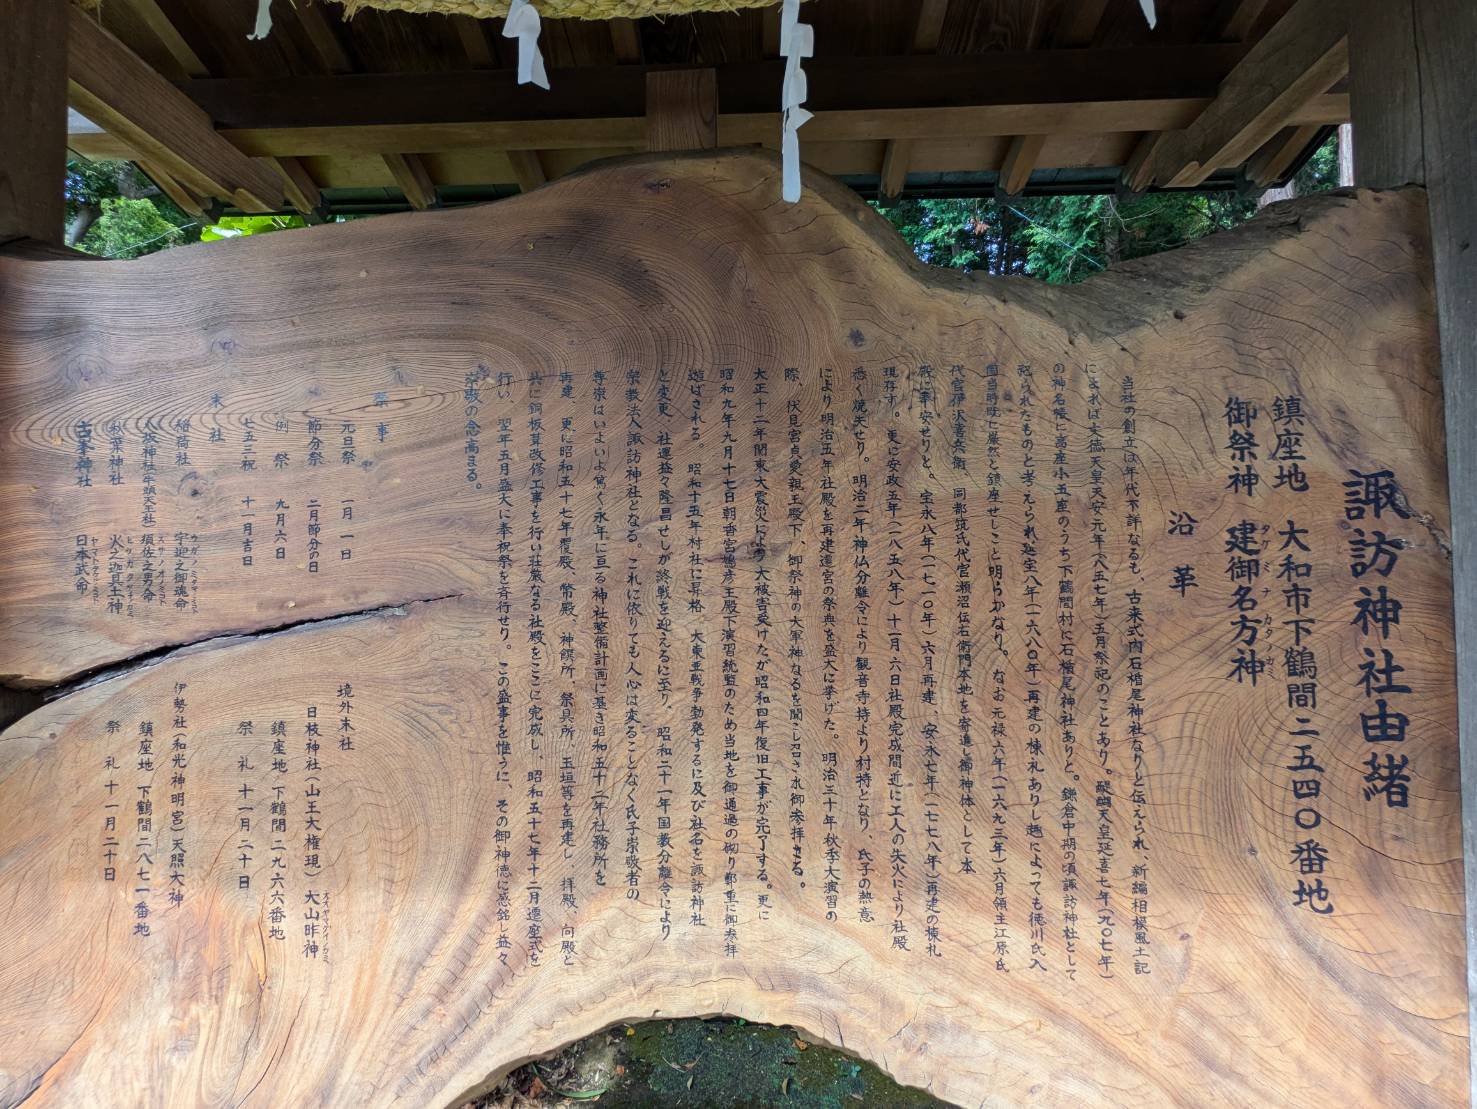 諏訪神社由緒
鎮座地 大和市下鶴間二五四〇番地
御祭神 建御名方神
タケミナカタノカミ
沿革
当社の創立は年代不詳なるも、古来式内石楯尾神社なりと伝えられ、新編相模風土記
によれば文徳天皇天安元年(八五七年)五月祭祀のことあり。醍醐天皇延喜七年(九〇七年)
の神名帳に高座小五座のうち下鶴間村に石楯尾神社ありと。鎌倉中期の頃諏訪神社として
祀られたものと考えられ延宝八年(一六八〇年)再建の棟札ありし趣によっても徳川氏入
国当時既に厳然と鎮座せしこと明らかなり。なお元禄六年(一六九三年)六月領主江原氏
代官伊沢喜兵衛 同都筑氏代官瀬沼伝右衛門本地を寄進し御神体として本
殿に奉安せりと。宝永八年(一七一〇年)六月再建 安永七年(一七七八年)再建の棟札
現存す。更に安政五年(一八五八年)十一月六日社殿完成間近に工人の失火により社殿
悉く焼失せり。明治二年神仏分離令により観音寺持より村持となり、氏子の熱意
により明治五年社殿を再建遷宮の祭典を盛大に挙げた。明治三十年秋季大演習の
際、伏見宮貞愛親王殿下、御祭神の大軍神なるを聞こし召さ水御参拝さる。
大正十二年関東大震災により大被害受けたが昭和四年復旧工事が完了する。更に
昭和九年九月十七日朝香宮鳩彦王殿下演習統監のため当地を御通過の砌り鄭重に御参拝
遊ばされる。昭和十五年村社に昇格 大東亜戦争勃発するに及び社名を諏訪神社
と変更、社運益々隆昌せしが終戦を迎えるに至り、昭和二十一年国教分離令により
宗教法人諏訪神社となる。これに依りても人心は変ることなく氏子崇敬者の
尊崇はいよいよ篤く永年に亘る神社整備計画に基き昭和五十二年社務所を
再建 更に昭和五十七年覆殿、幣殿、神饌所、祭具所、玉垣等を再建し、拝殿、向殿と
共に銅板葺改修工事を行い荘厳なる社殿をここに完成し、昭和五十七年十二月遷座式を
行い、翌年五月盛大に奉祝祭を斉行せり。この盛事を惟うに、その御神徳に感銘し益々
崇敬の念高まる。
祭事
元旦祭 一月一日
節分祭 二月節分の日
例祭 九月六日
七五三祝 十一月吉日
末社
稲荷社 宇迦之御魂命
ウガノミタマノミコト
八坂神社(牛頭天王社) 須佐之男命
スサノオノミコト
秋葉神社 火之迦具土神
ヒノカグツチノカミ
古峯神社 日本武命
ヤマトタケノミコト
境外末社
日枝神社(山王大権現) 大山昨神
鎮座地 下鶴間二九六六番地
祭礼 十一月二十日
伊勢社(和光神明宮)天照大神
鎮座地 下鶴間二八七一番地
祭礼 十一月二十日